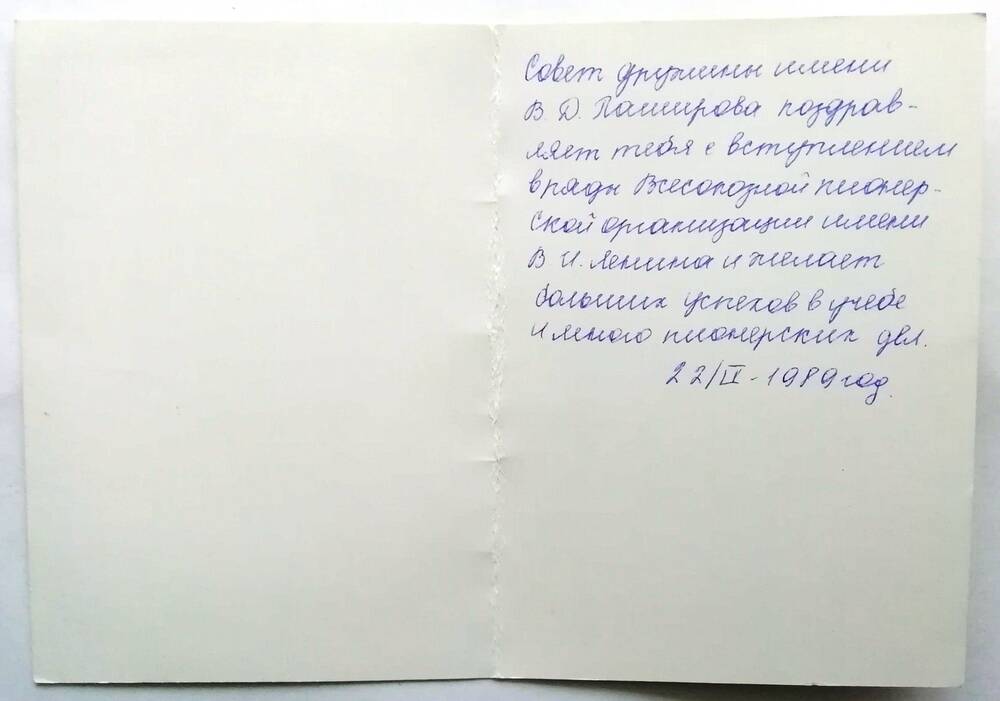 Совет дружины имени
В. Д. Паширова поздрав-
ляет тебя с вступлением
в ряды Всесоюзной пионер-
ской организации имени
В. И. Ленина и желает
больших успехов в учебе
и много пионерских дел.
22/IV - 1989 год.